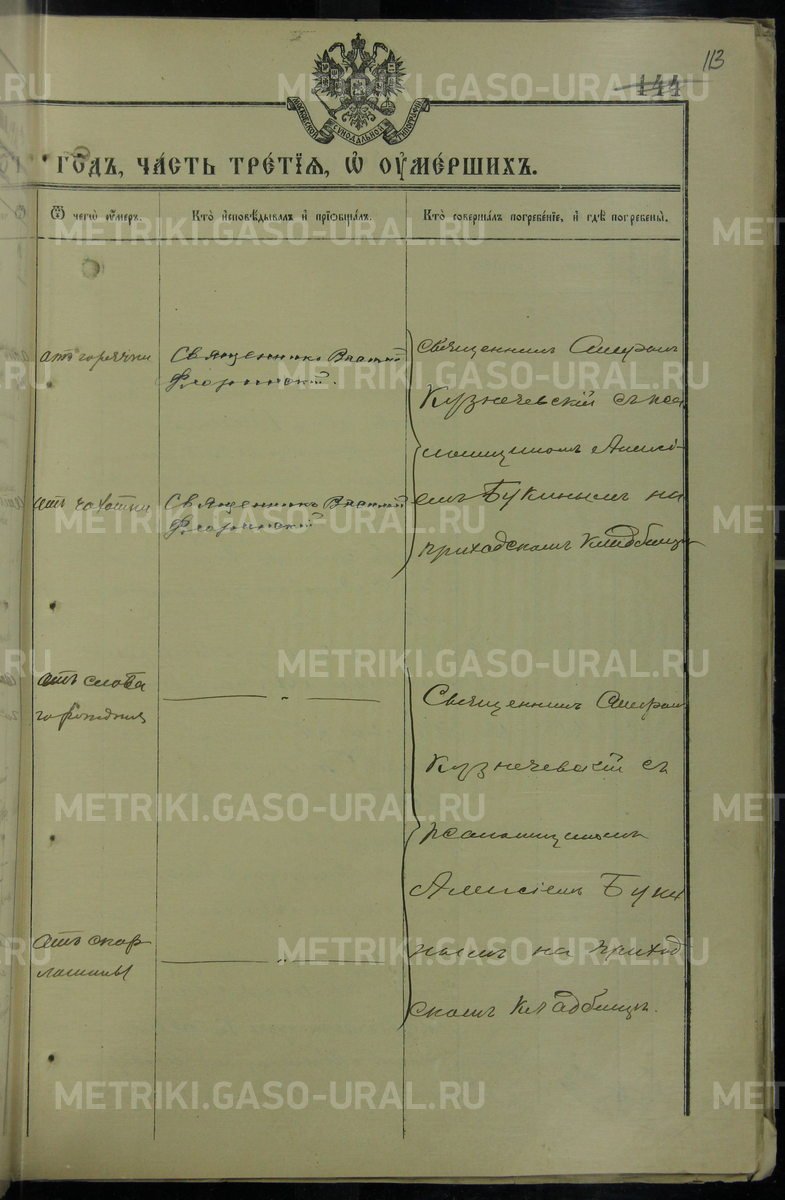 113
144
МОСКОВСКОЙ СѴНОДАЛЬНОЙ ТИПОГРАФІИ
годъ, ча́сть тре́тїѧ, ѡ҆ ᲂу҆ме́ршихъ.
Ѿ чегѡ̀ ᲂу҆́меръ.
Кто̀ и҆сповѣ́дывалъ и҆ прїѡбща́лъ.
Кто̀ соверша́лъ погребе́нїе, и҆ гдѣ̀ погребены̀.
отъ горячки
Священникъ Василій
Флоринскій.
Священникъ
Кузнечевскій съ псал
ломщикомъ Алексі
емъ Букинымъ на
приходскомъ кладбищѣ
отъ чахотки
Священникъ Василій
Флоринскій
отъ слаба
го рожденія
— „ —
Священникъ
Кузнечевскій съ
псаломщикомъ
Алексіемъ Буки
нымъ на приход
скомъ кладбищѣ.
отъ скар
латины
— „ —
METRIKI.GASO-URAL.RU